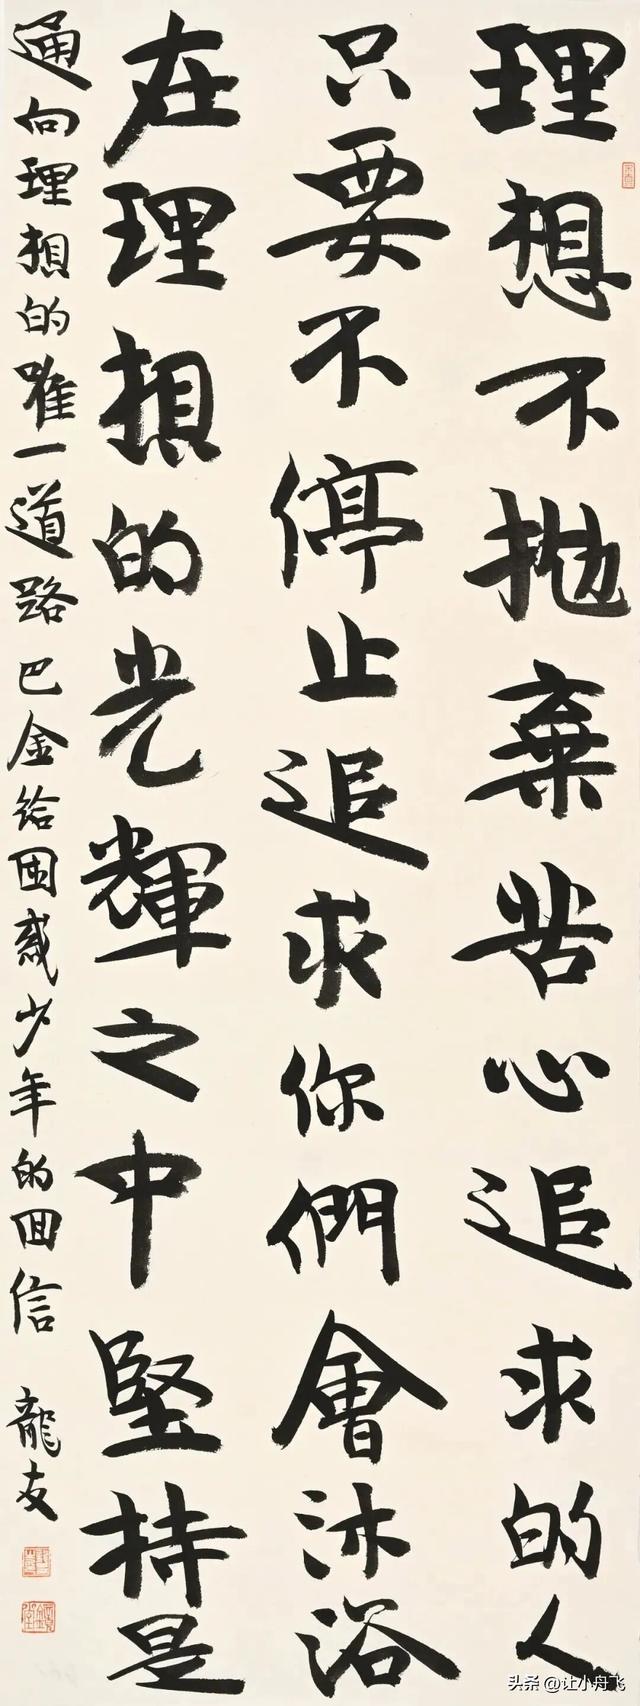 理想不抛棄苦心追求的人
只要不停止追求你們會沐浴
在理想的光輝之中堅持是
通向理想的唯一道路巴金給困惑少年的回信
龍友
头条 @让小舟飞